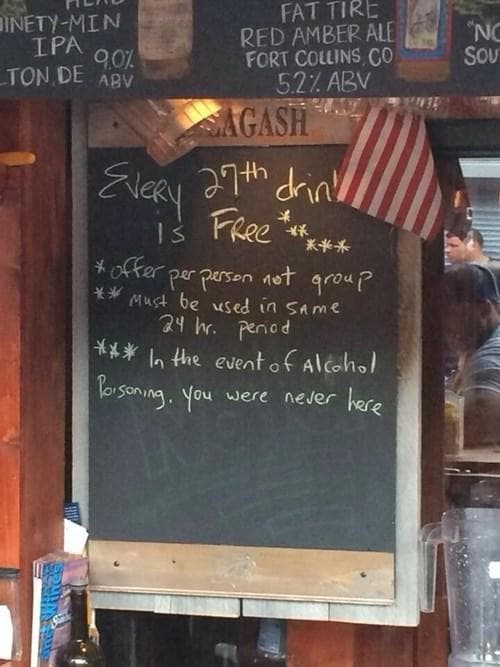 INETY-MIN
IPA
9.0%
LTON, DE ABV
FAT TIRE
RED AMBER ALE
FORT COLLINS, CO
5.2% ABV
AGASH
Every 27th drin
is Free* ** ***
* offer per person not group
** Must be used in SAME
24 hr. Period
*** In the event of Alcohol
Poisoning, you were never here